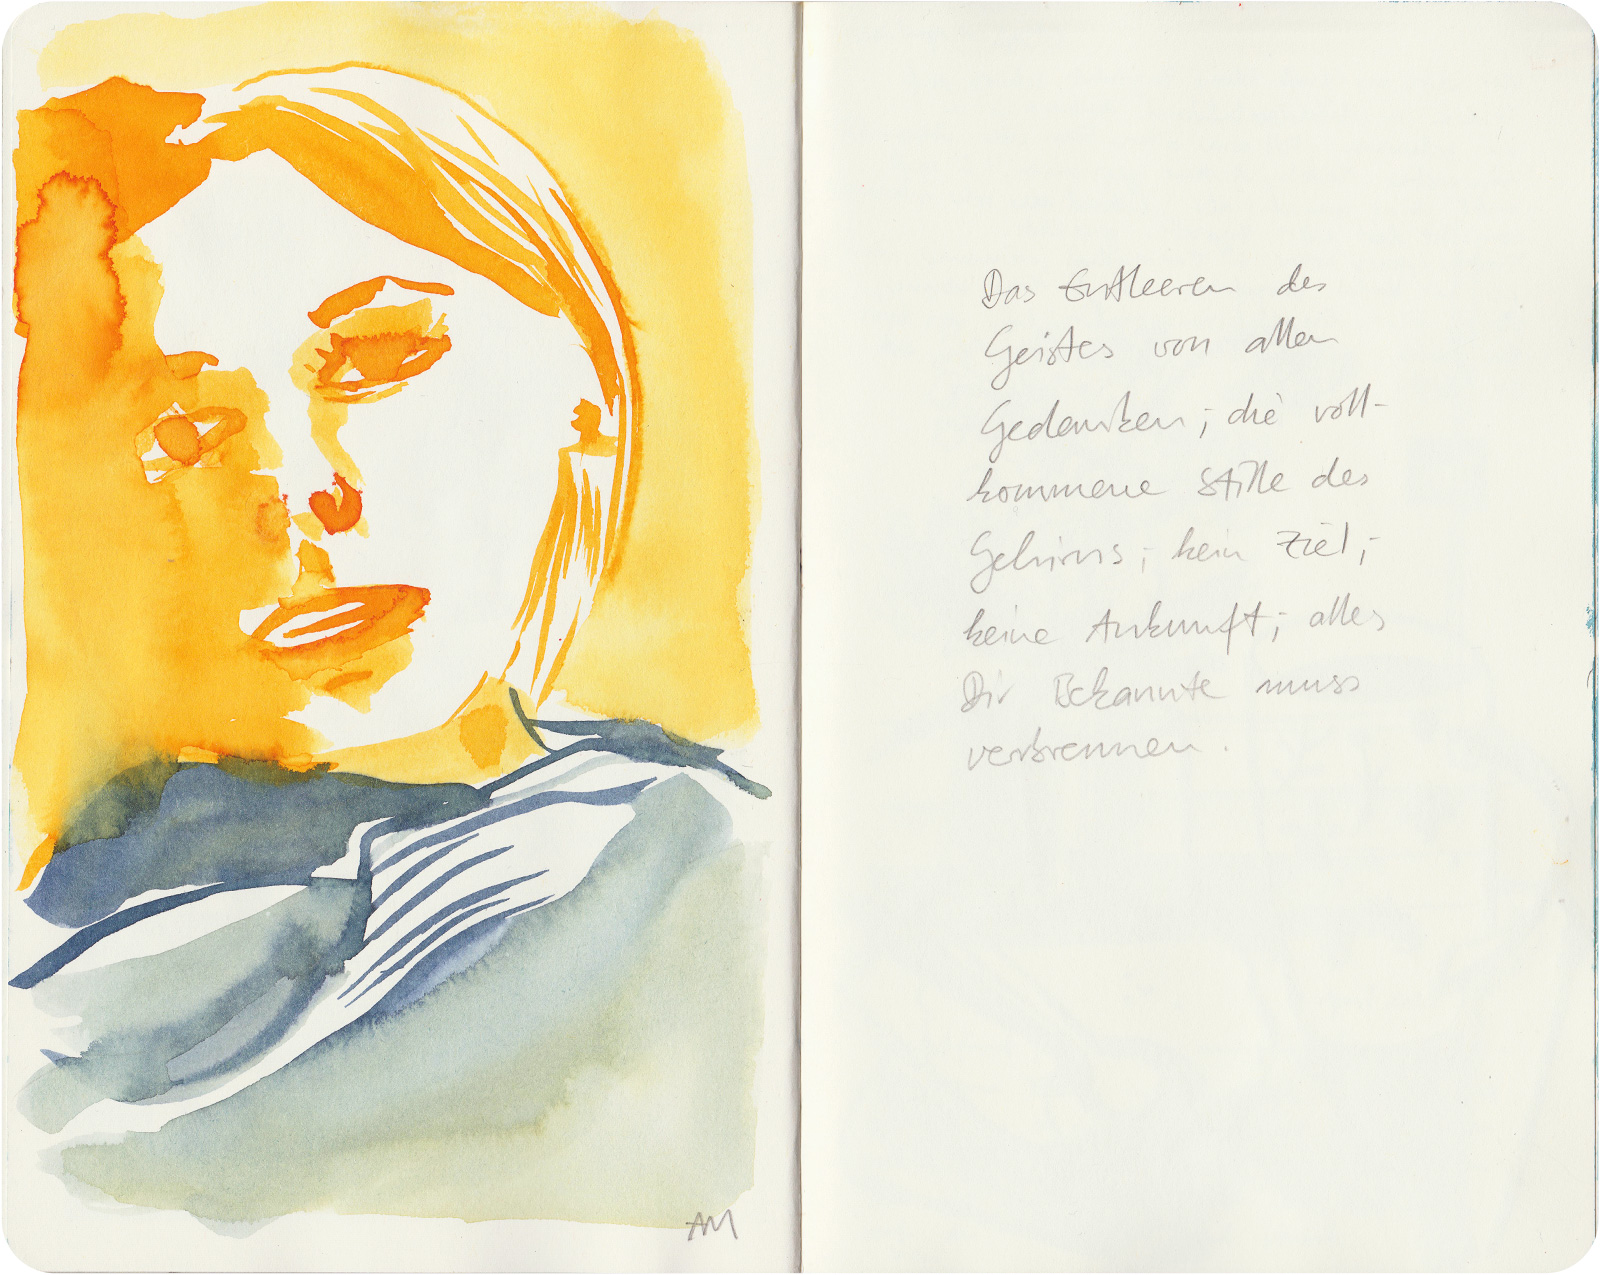 Das Entleeren des
Geistes von allen
Gedanken; die voll-
kommene Stille des
Gehirns; kein Ziel;
keine Ankunft; alles
Dir Bekannte muss
verbrennen.
AM